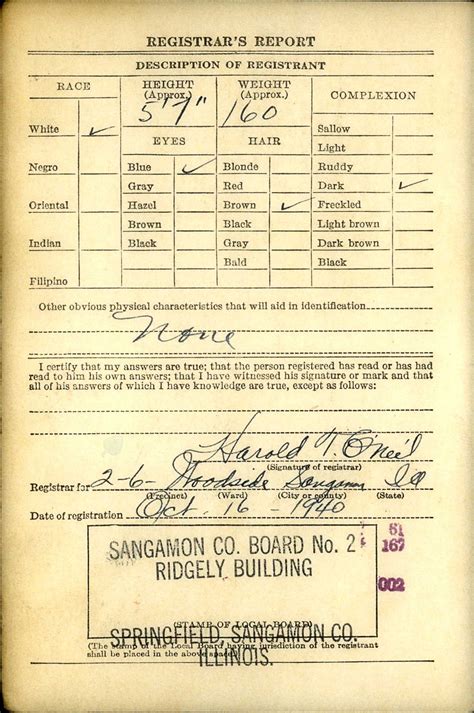 REGISTRAR'S REPORT
DESCRIPTION OF REGISTRANT
RACE
HEIGHT (Approx.)
WEIGHT (Approx.)
COMPLEXION
5' 7"
160
White ✓
Sallow
Light
EYES
HAIR
Negro
Blue ✓
Blonde
Ruddy
Gray
Red
Dark ✓
Oriental
Hazel
Brown ✓
Freckled
Brown
Black
Light brown
Indian
Black
Gray
Dark brown
Bald
Black
Filipino
Other obvious physical characteristics that will aid in identification
None
I certify that my answers are true; that the person registered has read or has had
read to him his own answers; that I have witnessed his signature or mark and that
all of his answers of which I have knowledge are true, except as follows:
Harold T. O'Neil
(Signature of registrar)
Registrar for 2-6- Woodside Sangamon Ill
(Precinct) (Ward) (City or county) (State)
Date of registration Oct. 16 - 1940
SANGAMON CO. BOARD No. 2
61
167
RIDGELY BUILDING
002
(STAMP OF LOCAL BOARD)
SPRINGFIELD, SANGAMON CO.
(The stamp of the Local Board having jurisdiction of the registrant
shall be placed in the above space)
ILLINOIS.